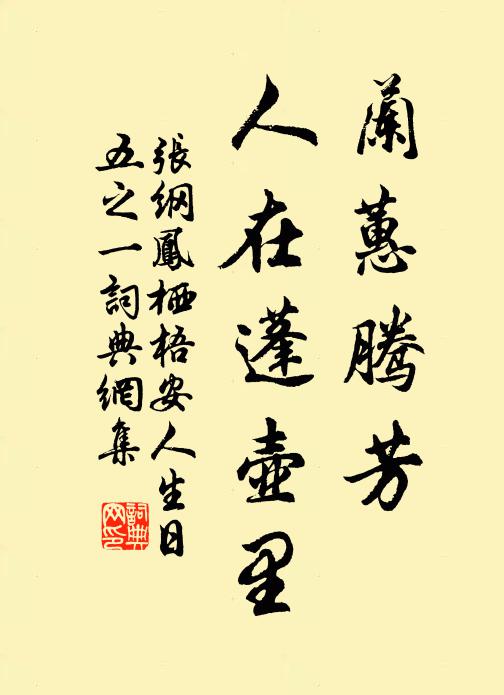 蘭蕙騰芳
人在蓬壺里
張綱鳳栖梧安人生日
五之一詞典網集
詞典
网印